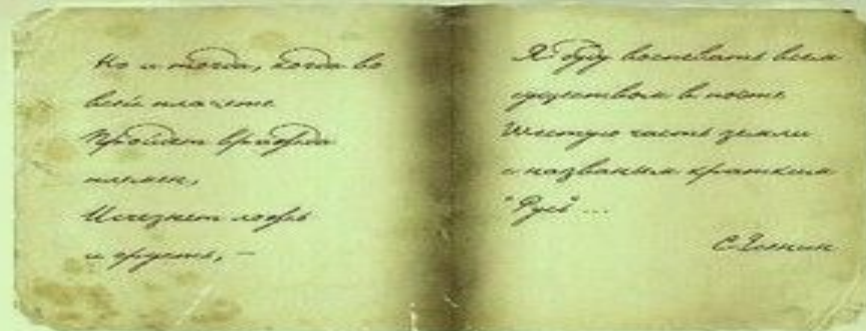 Но и тогда, когда во
всей планете
Пройдет вражда
племен,
Исчезнет ложь
и грусть, –
Я буду воспевать всем
существом в поэте
Шестую часть земли
с названьем кратким
"Русь"...
С. Есенин